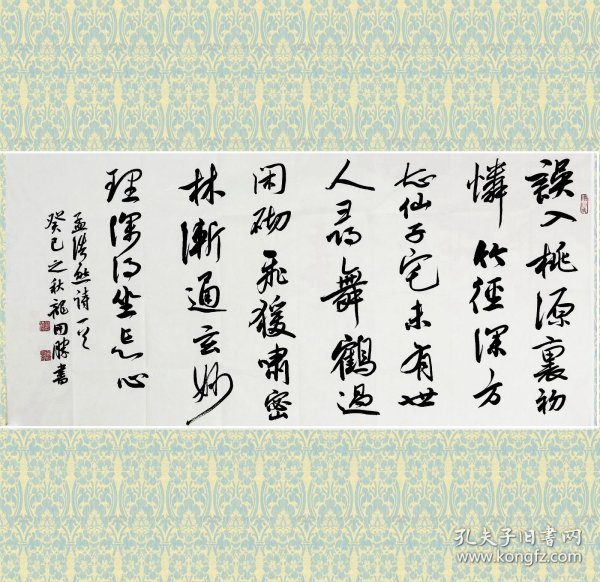 誤入桃源裏初
憐竹徑深方
知仙子宅未有世
人尋舞鶴過
閑砌飛猨嘯密
林漸通玄妙
理深得坐忘心
孟浩然詩一首
癸巳之秋龍田勝書
孔夫子旧书网
www.kongfz.com